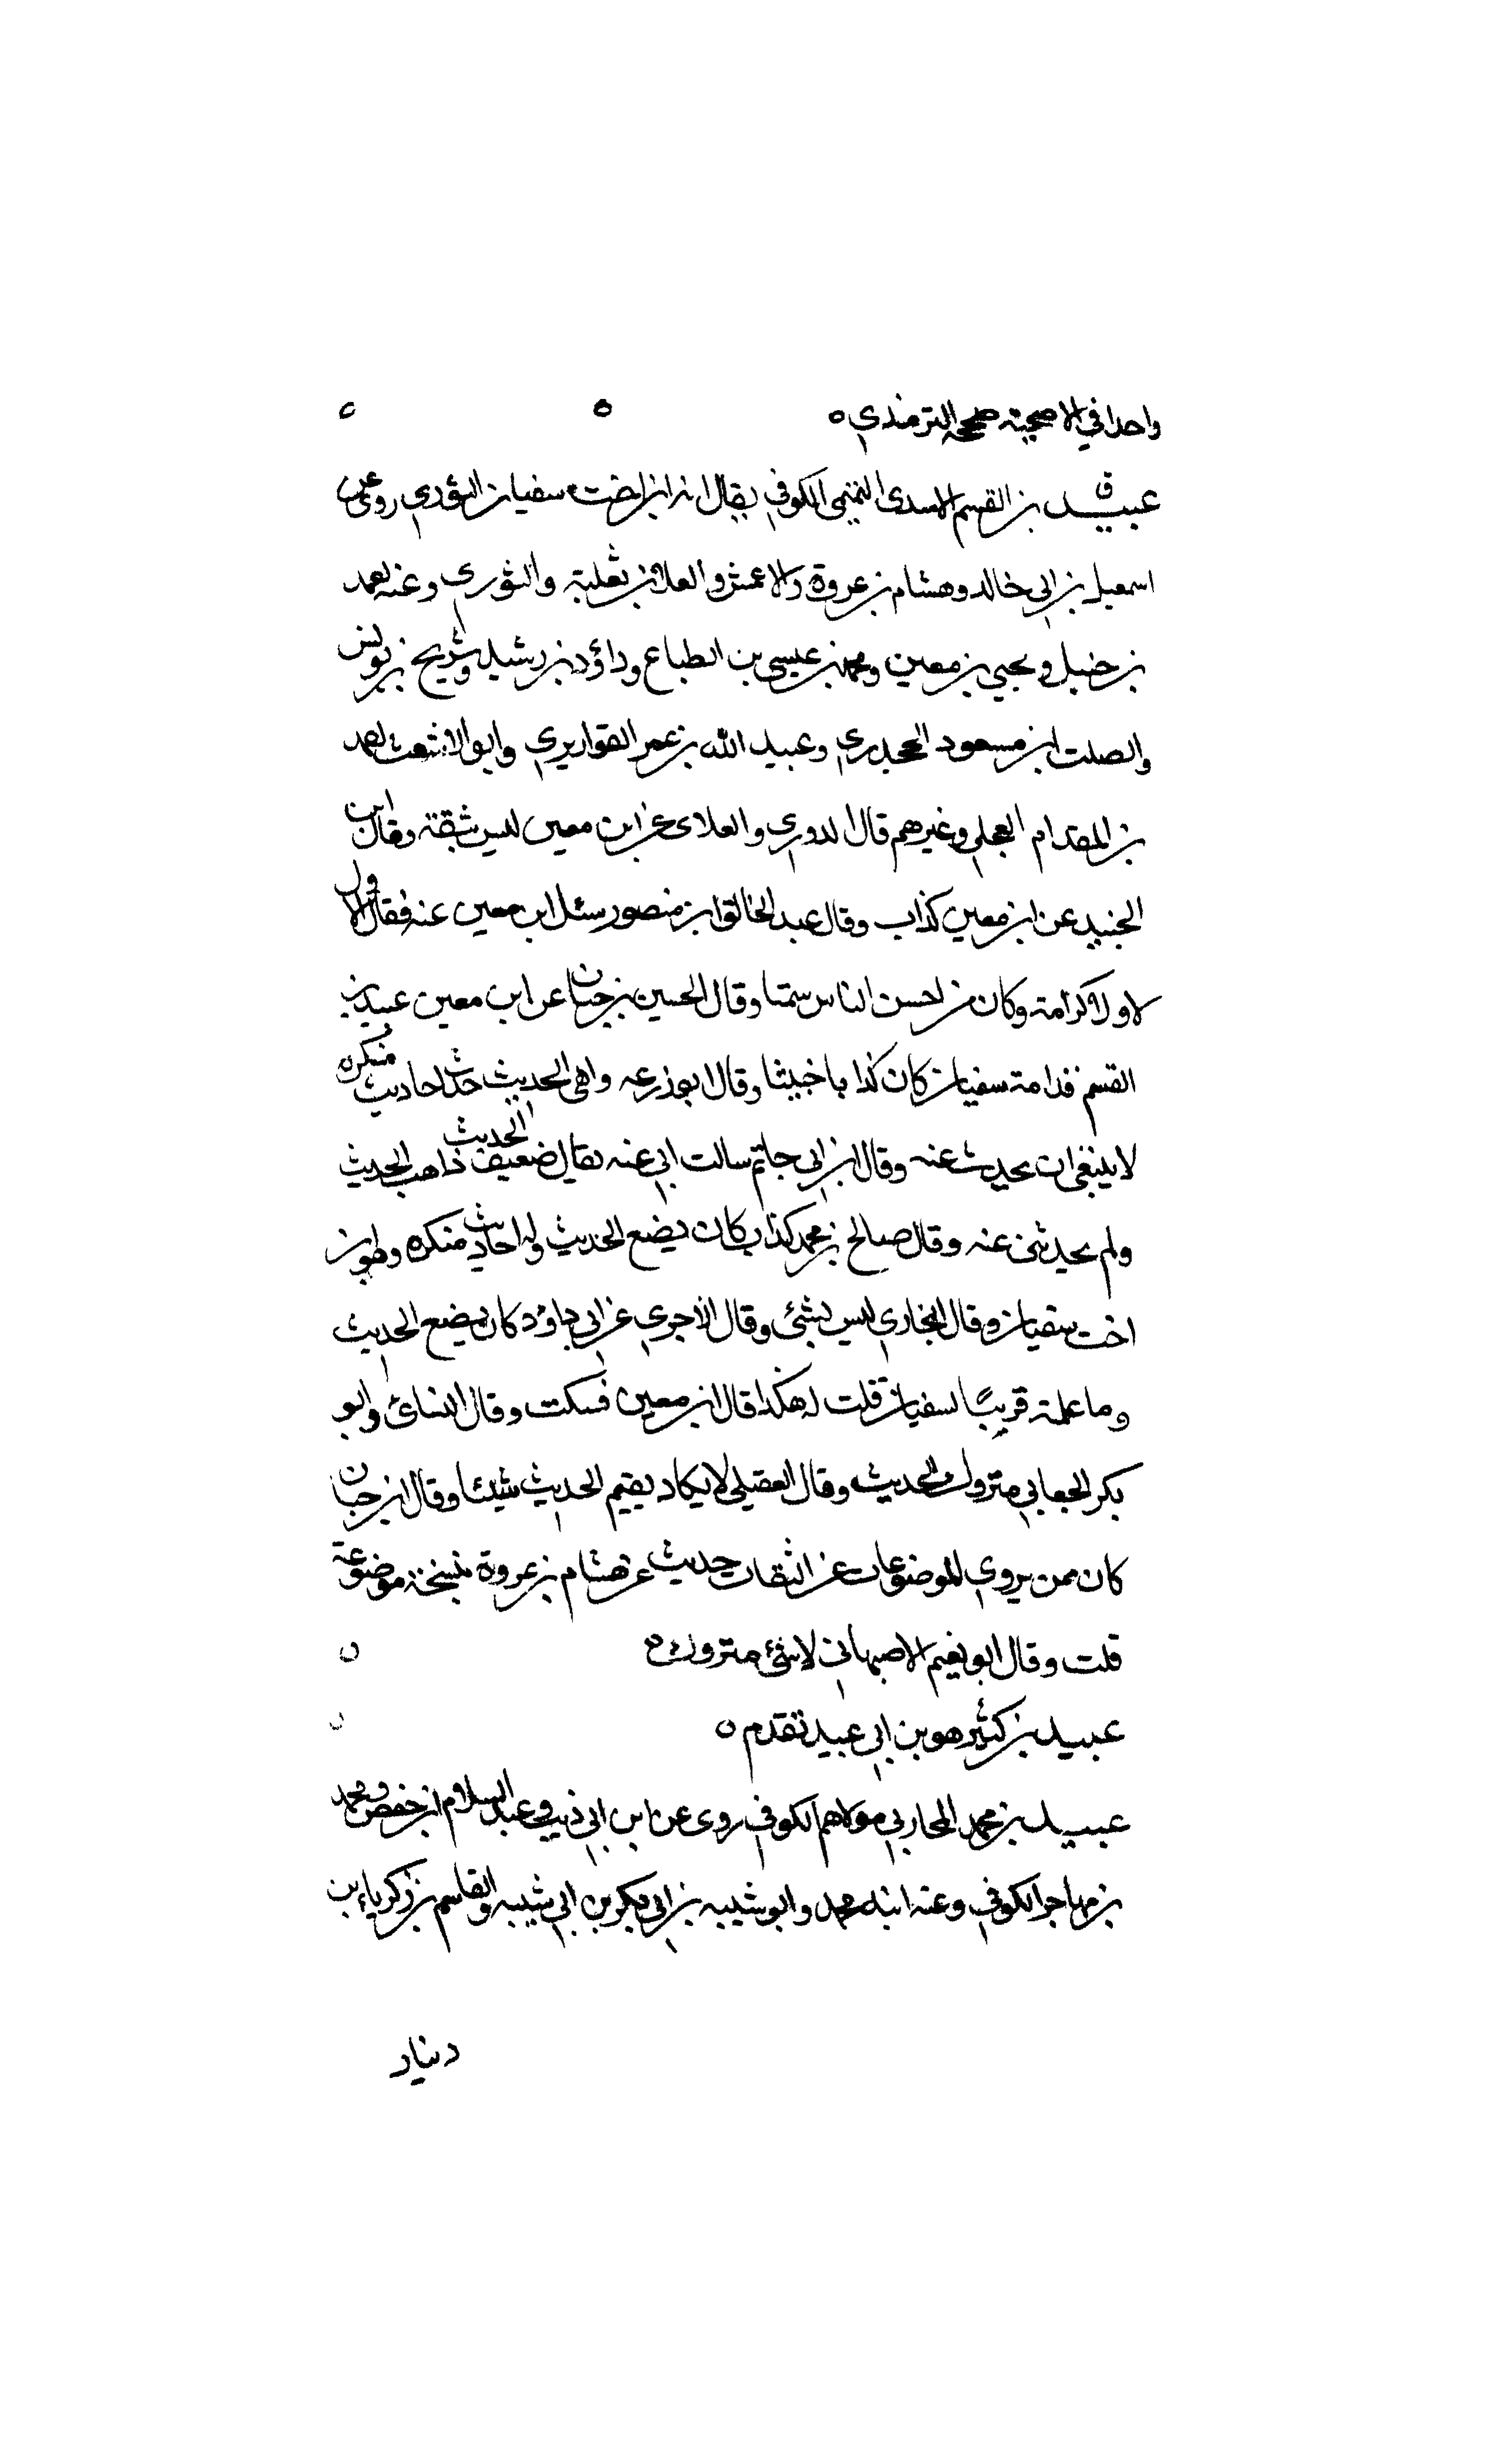 واحدا في الاضحية صححه الترمذي ه ه
عبيد ق بن القسم الاسدي التيمي الكوفي يقال انه ابن اخت سفيان الثوري روى عن
اسمعيل بن ابي خالد وهشام بن عروة والاعمش والعلاء بن ثعلبة والثوري وعنه احمد
بن حنبل ويحيي بن معين ومحمد بن عيسى بن الطباع وداؤد بن رشيد وشريح بن يونس
والصلت ابن مسعود الجحدري وعبيد الله بن عمر القواريري وابو الاشعث احمد
بن المقدام العجلي وغيرهم قال الدوري والعلاى عن ابن معين ليس بثقة وقال ابن
الجنيد عن ابن معين كذاب وقال عبد الخالق ابن منصور سئل ابن معين عنه فقال الاول
لا ولا كرامة وكان من احسن الناس سمتا وقال الحسين بن حبان عن ابن معين عبيد بن
القسم قدامة سفيان كان كذابا خبيثا وقال ابو زرعه واهي الحديث حدث احاديث منكره
لا ينبغي ان يحدث عنه وقال ابن ابي حاتم سالت ابي عنه فقال ضعيف الحديث ذاهب الحديث
ولم يحدثني عنه وقال صالح بن محمد كذاب كان يضع الحديث وله احاديث منكره وهو ابن
اخت سفيان وقال البخاري ليس بشئ وقال الآجري عن ابي داؤد كان يضع الحديث
وما علمته قريبًا لسفيان قلت له هكذا قال ابن معين فسكت وقال النسائ وابو
بكر الجعابي متروك الحديث وقال العقيلي لا يكاد يقيم الحديث شيئا وقال ابن حبان
كان ممن يروي الموضوعات عن الثقات حديث عن هشام بن عروة نسخة موضوعة
قلت وقال ابو نعيم الاصبهاني لا شئ متروك ه
عبيد بن كثير هو بن ابي عبيد تقدم ه
عبيد بن محمد المحاربي مولاهم الكوفي روى عن ابن ابي ذيب وعبد السلام ابن حفص ومحمد
بن مهاجر الكوفي وعنه ابنه محمد وابو شيبه بن ابي بكر بن ابي شيبه والقاسم بن زكرياء بن
دينار